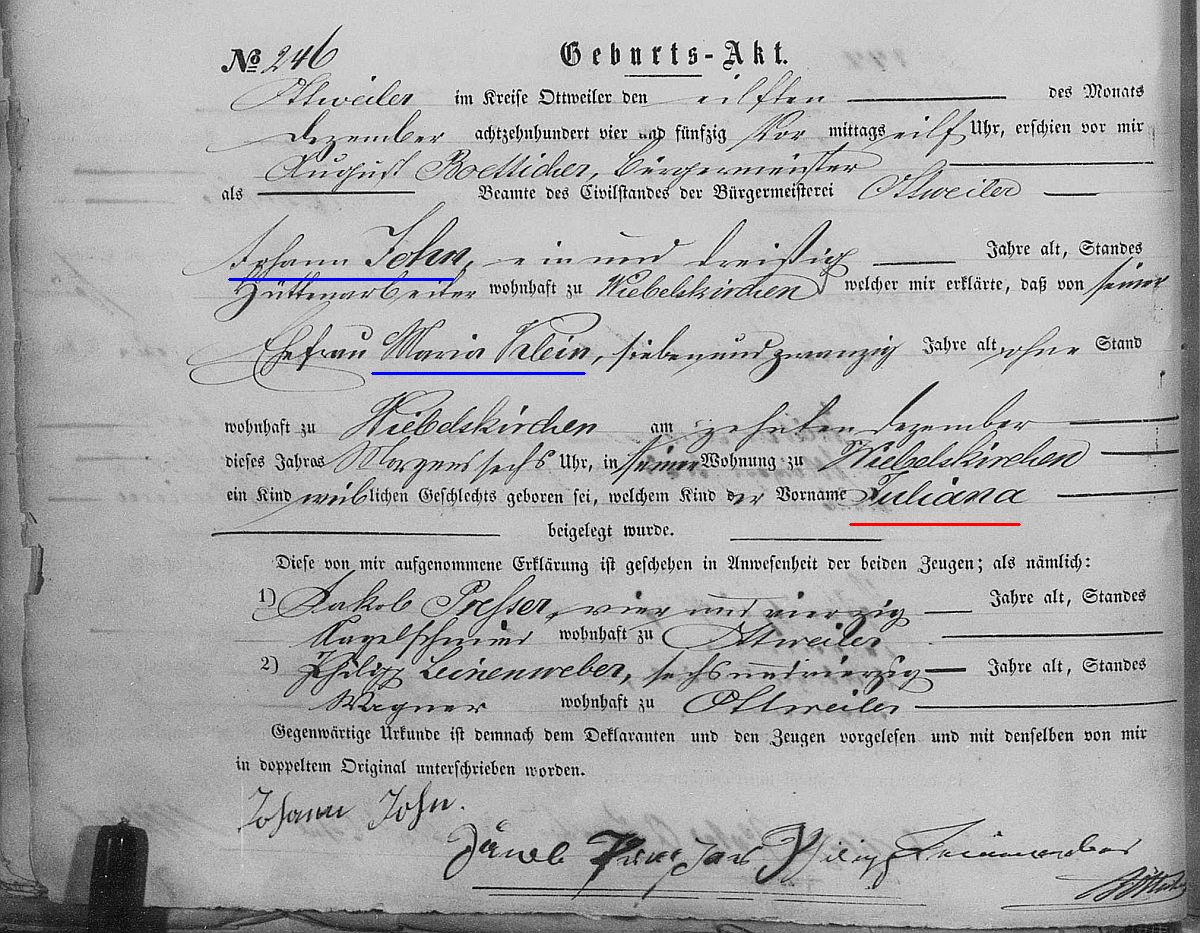 № 246 Geburts-Akt.
Ottweiler im Kreise Ottweiler den eilften des Monats
Dezember achtzehnhundert vier und fünfzig Vor mittags eilf Uhr, erschien vor mir
August Boetticher, Bürgermeister
als Beamte des Civilstandes der Bürgermeisterei Ottweiler
Johann John, ein und dreißig Jahre alt, Standes
Hüttenarbeiter wohnhaft zu Wiebelskirchen, welcher mir erklärte, daß von seiner
Ehefrau Maria Klein, siebenundzwanzig Jahre alt, ohne Stand
wohnhaft zu Wiebelskirchen am zehnten Dezember
dieses Jahres Morgens sechs Uhr, in seiner Wohnung zu Wiebelskirchen
ein Kind weiblichen Geschlechts geboren sei, welchem Kind der Vorname Juliana
beigelegt wurde.
Diese von mir aufgenommene Erklärung ist geschehen in Anwesenheit der beiden Zeugen; als nämlich:
1) Jakob Presser, vier und vierzig Jahre alt, Standes
Nagelschmied wohnhaft zu Ottweiler
2) Philipp Leinenweber, sechsundvierzig Jahre alt, Standes
Wagner wohnhaft zu Ottweiler
Gegenwärtige Urkunde ist demnach dem Deklaranten und den Zeugen vorgelesen und mit denselben von mir
in doppeltem Original unterschrieben worden.
Johann John.
Jacob Presser Philipp Leinenweber